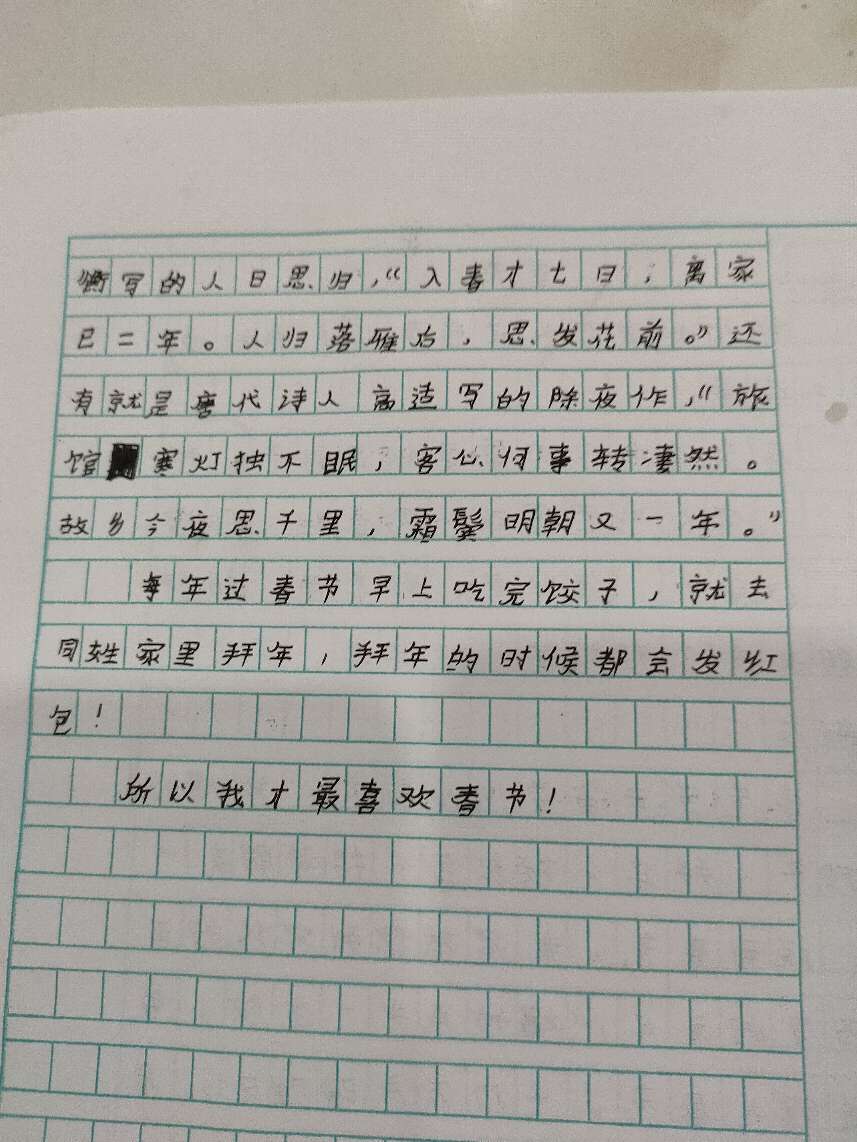 衡写的人日思归，“入春才七日，离家
已二年。人归落雁后，思发花前。”还
有就是唐代诗人高适写的除夜作，“旅
馆寒灯独不眠，客心何事转凄然。
故乡今夜思千里，霜鬓明朝又一年。”
每年过春节早上吃完饺子，就去
同姓家里拜年，拜年的时候都会发红
包！
所以我才最喜欢春节！